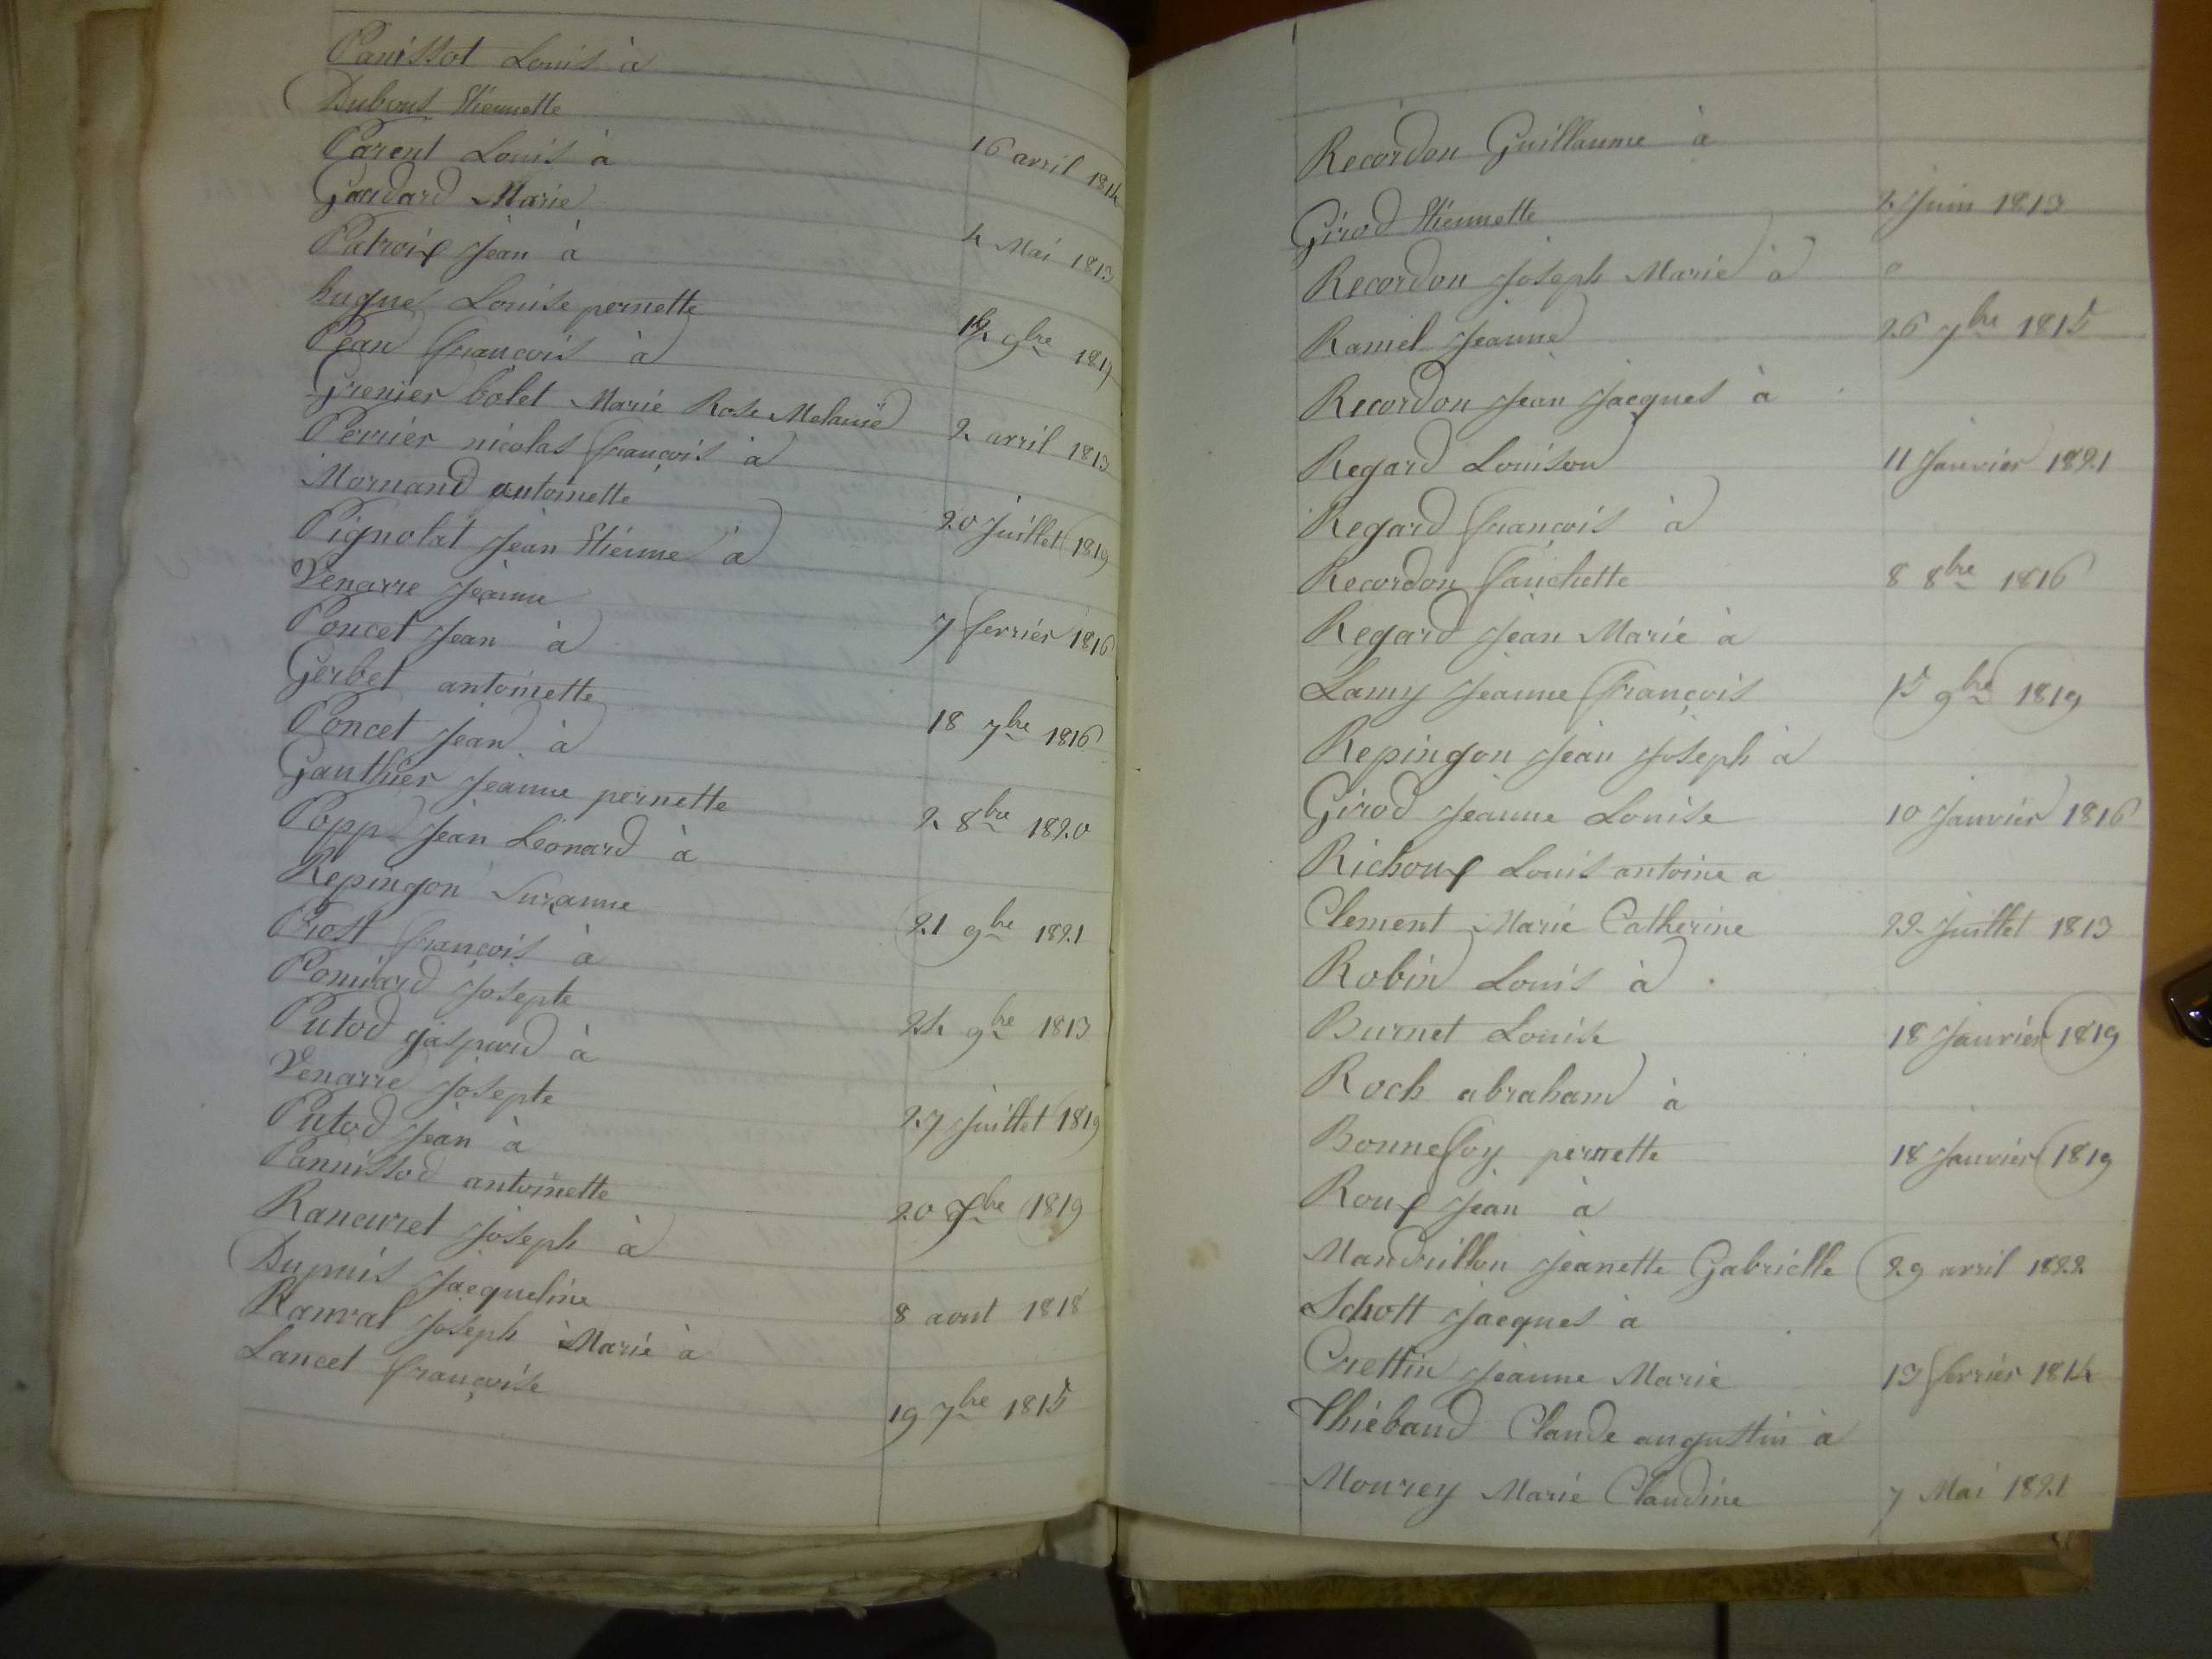 Panissot Louis à
Dubous Etiennette 16 avril 1814
Parent Louis à
Gaudard Marie 4 Mai 1813
Patroix Jean à
hugues Louise pernette 12 9bre 1819
Pean françois à
Grenier bolet Marie Rose Melanie 2 avril 1813
Perrier nicolas françois à
Mornand antoinette 20 Juillet 1819
Pignolat Jean Etienne à
Venarre Jeanne 7 fevrier 1816
Poncet Jean à
Gerbet antoinette 18 7bre 1816
Poncet Jean à
Gauthier Jeanne pernette 2 8bre 1820
Popp Jean Léonard à
Repingon Suzanne 21 9bre 1821
Prost françois à
Ponnard Josepte 24 9bre 1813
Putod gaspard à
Venarre Josepte 27 Juillet 1819
Putod Jean à
Pannissod antoinette 20 7bre 1819
Rancuret Joseph à
Dupuis Jacqueline 8 aout 1818
Ranval Joseph Marie à
Lancet françoise 19 7bre 1815
Recordon Guillaume à
Girod Etiennette 2 Juin 1813
Recordon Joseph Marie à
Ramel Jeanne 26 7bre 1815
Recordon Jean Jacques à
Regard Louison 11 Janvier 1821
Regard françois à
Recordon fanchette 8 8bre 1816
Regard Jean Marie à
Lamy Jeanne françois 15 9bre 1819
Repingon Jean Joseph à
Girod Jeanne Louise 10 Janvier 1816
Richoux Louis antoine a
Clement Marie Catherine 22 Juillet 1813
Robin Louis à
Burnet Louise 18 Janvier 1819
Roch abraham à
Bonnefoy pernette 18 Janvier 1819
Roux Jean à
Mandrillon Jeanette Gabrielle 29 avril 1822
Schott Jacques à
Crettin Jeanne Marie 13 fevrier 1814
Thiébaud Claude augustin à
Mourey Marie Claudine 7 Mai 1821